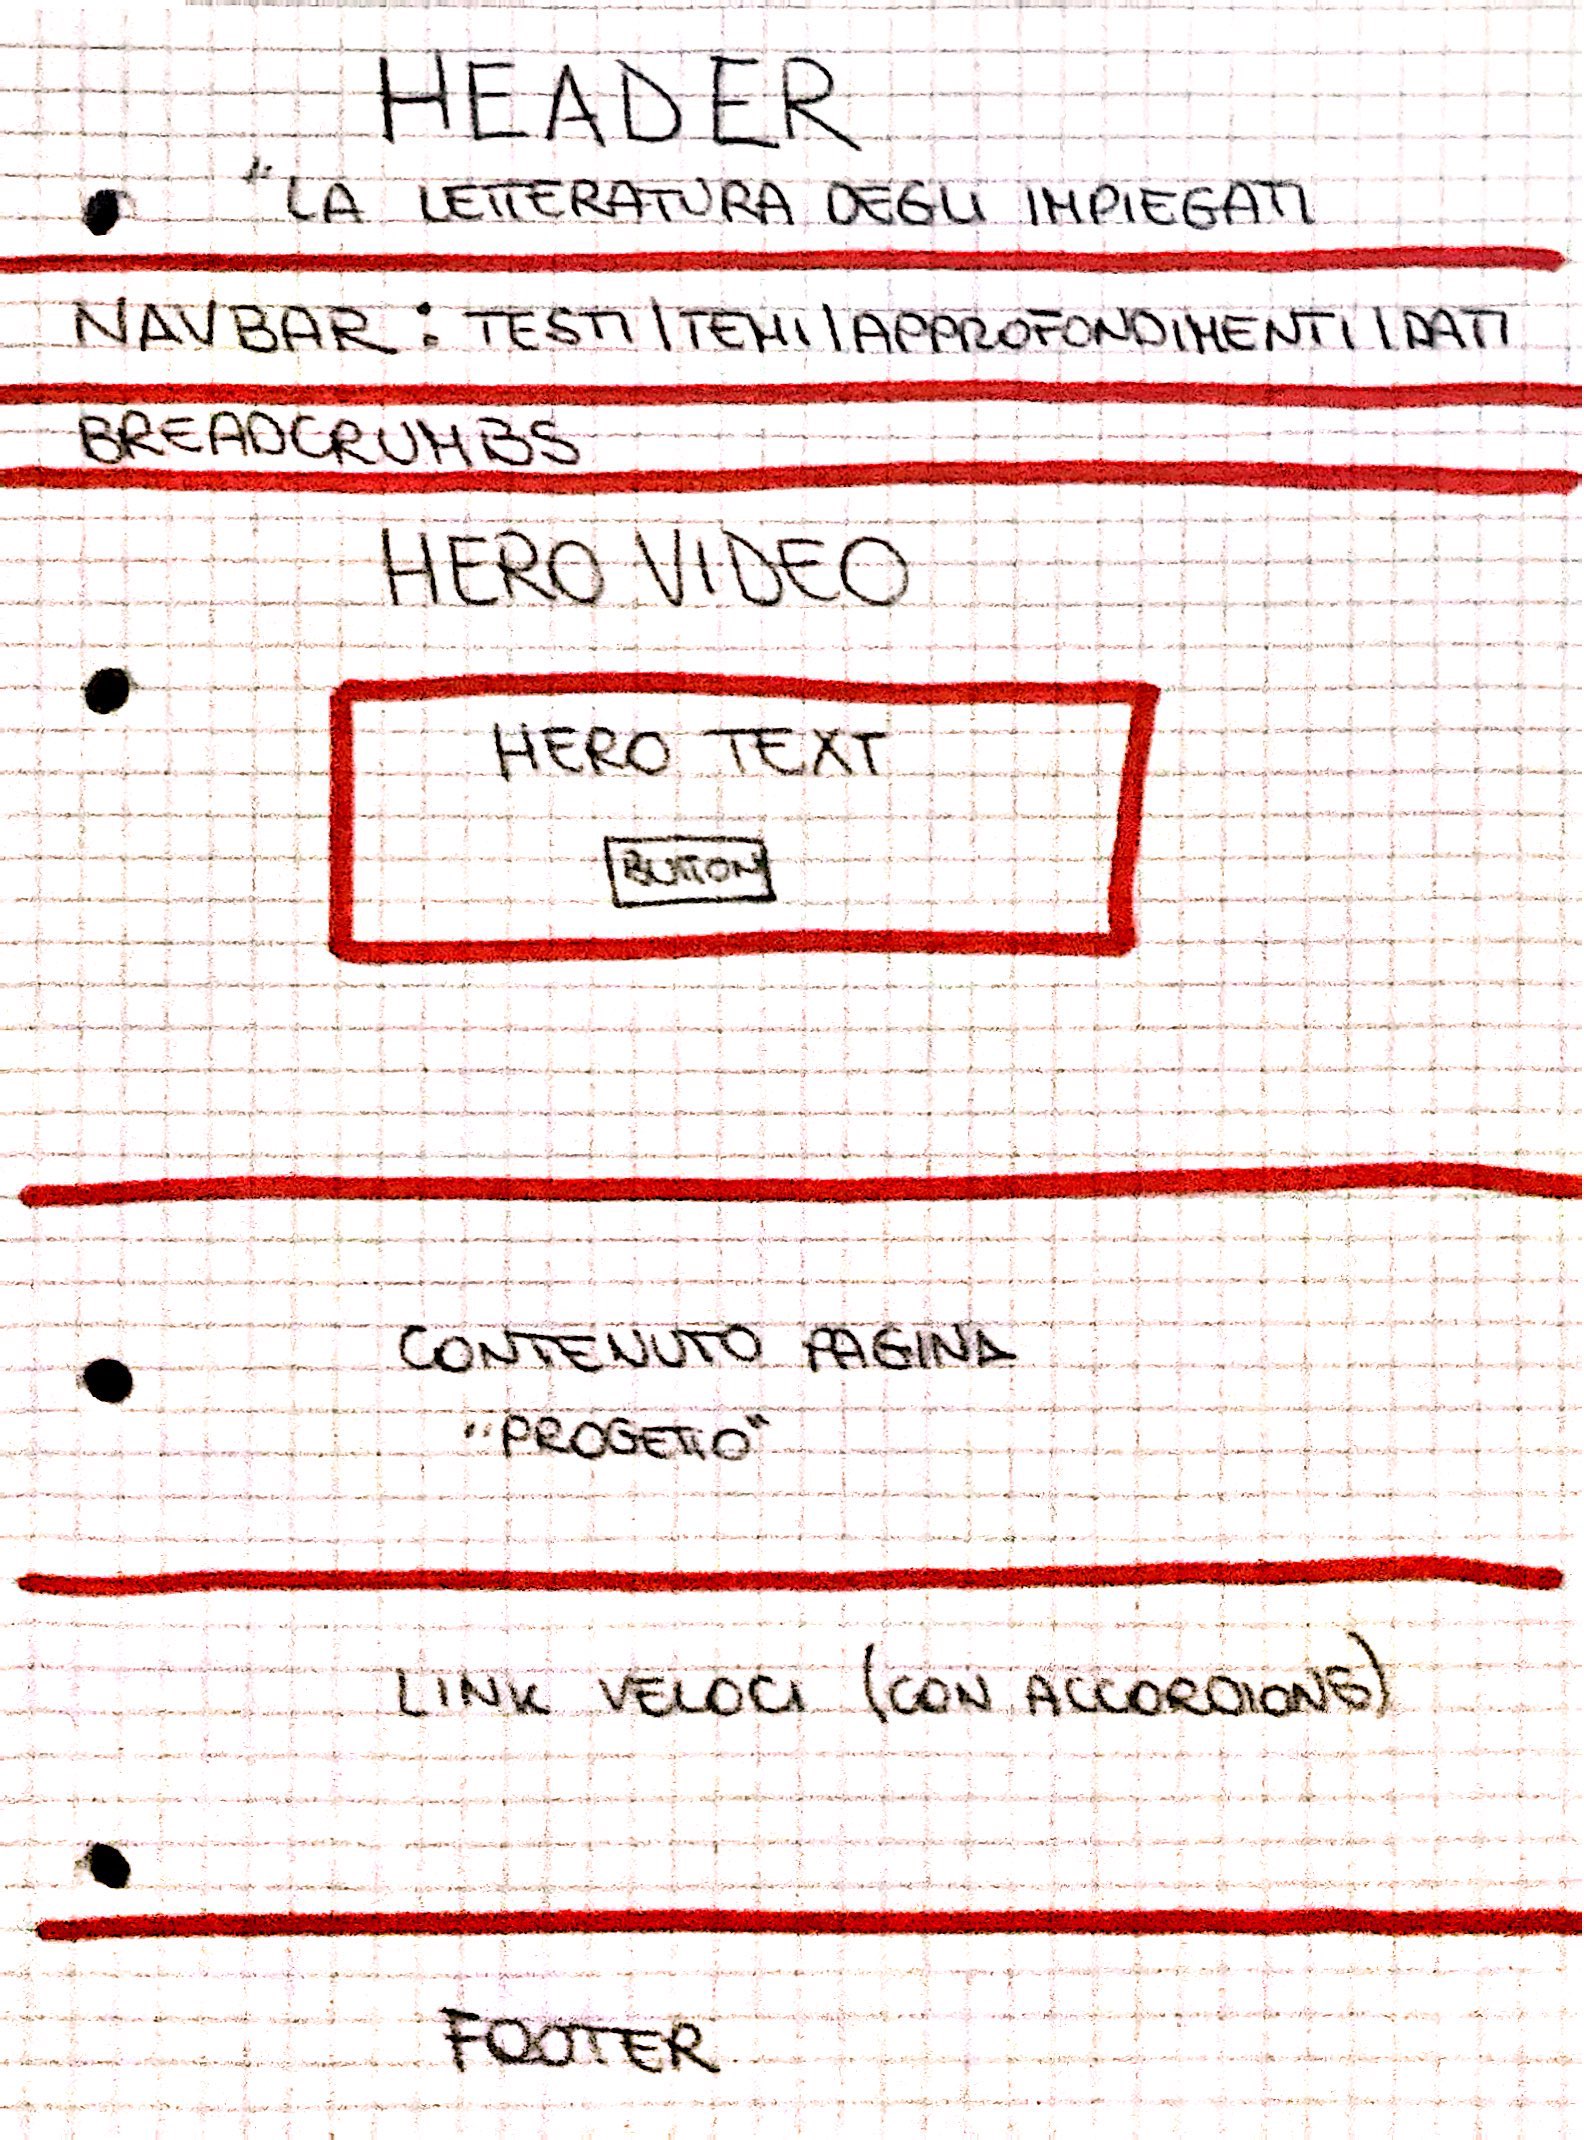 HEADER
"LA LETTERATURA DEGLI IMPIEGATI
NAVBAR: TESTI | TEMI | APPROFONDIMENTI | DATI
BREADCRUMBS
HERO VIDEO
HERO TEXT
BUTTON
CONTENUTO PAGINA
"PROGETTO"
LINK VELOCI (CON ACCORDIONS)
FOOTER